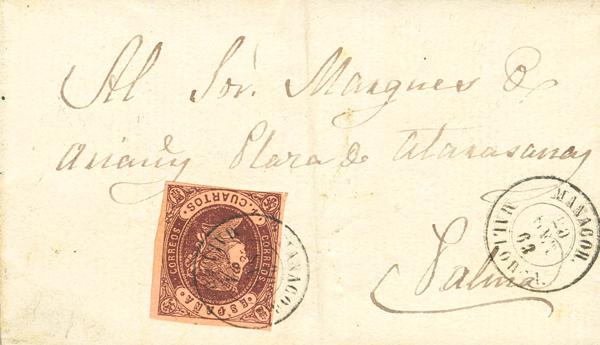 Al Sor. Marques de
Ariañy Plaza de Atarasanas
Palma
MANACOR.
MALLORCA.
63
4 CUARTOS
CORREOS
CORREOS
ESPAÑA
MANACOR.